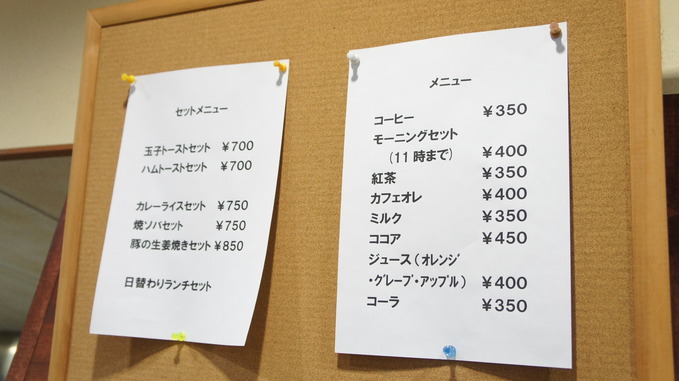 セットメニュー
玉子トーストセット ¥700
ハムトーストセット ¥700
カレーライスセット ¥750
焼ソバセット ¥750
豚の生姜焼きセット ¥850
日替わりランチセット
メニュー
コーヒー ¥350
モーニングセット
(11時まで) ¥400
紅茶 ¥350
カフェオレ ¥400
ミルク ¥350
ココア ¥450
ジュース(オレンジ
・グレープ・アップル) ¥400
コーラ ¥350